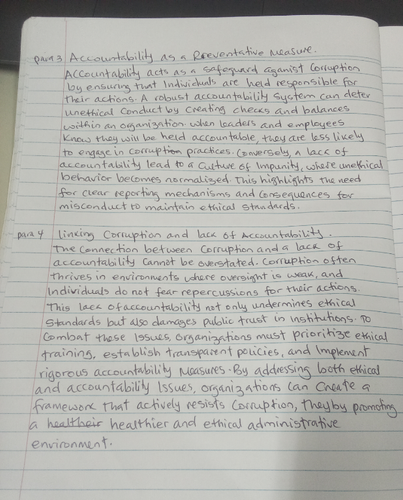 para 3 Accountability as a Preventative Measure.
Accountability acts as a safeguard aganist Corruption
by ensuring that Individuals are held responsible for
their actions. A robust accountability System can deter
Unethical Conduct by Creating checks and balances
within an organization. when leaders and employees
know they will be held accountable, they are less likely
to engage in corruption practices. Conversely, a lack of
accountability lead to a Culture of Impunity, where unethical
behavior becomes normalized. This highlights the need
for clear reporting mechanisms and Consequences for
misconduct to maintain ethical standards.
para 4 linking Corruption and lack of Accountability.
The Connection between Corruption and a lack of
accountability Cannot be overstated. Corruption often
thrives in environments where oversight is weak, and
Individuals do not fear repercussions for their actions.
This lack of accountability not only undermines ethical
Standards but also damages public trust in institutions. To
Combat these Issues, organizations must prioritize ethical
training, establish transparent policies, and Implement
rigorous accountability Measures. By addressing both ethical
and accountability Issues, organizations Can Create a
framework That actively resists Corruption, they by promoting
a healtheir healthier and ethical administrative
environment.